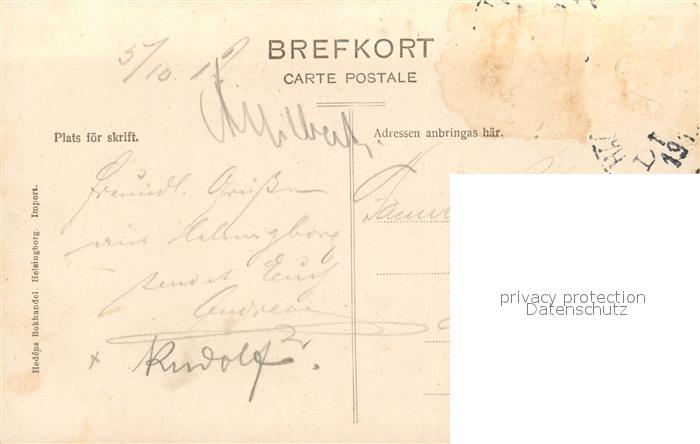 BREFKORT
CARTE POSTALE
5/10.1
Plats för skrift.
Adressen anbringas här.
Freundl. Grüße
aus Helsingborg
sendet Euch
Andreas
Rudolf
Famil
Hedéns Bokhandel Helsingborg. Import.
LI
19
privacy protection
Datenschutz